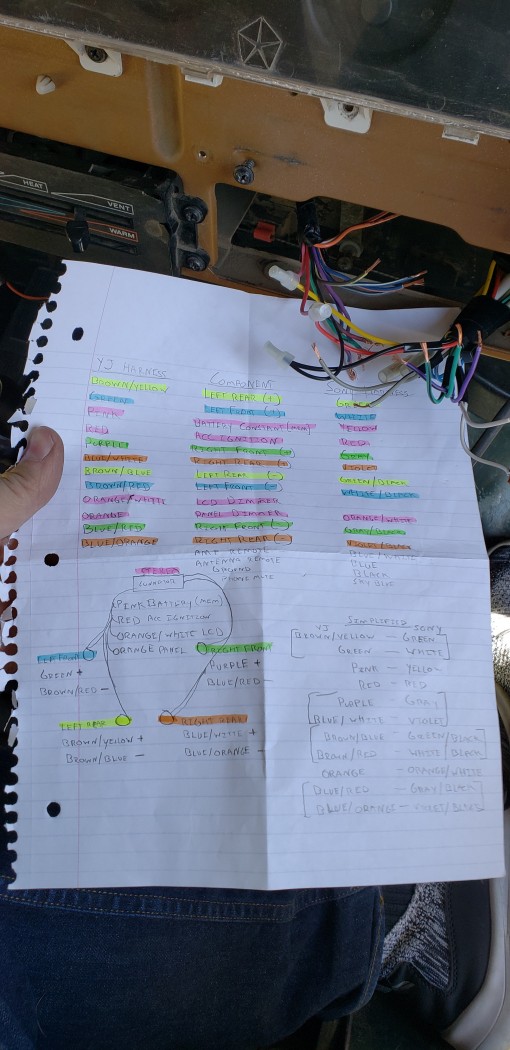 HEAT
VENT
WARM
YJ HARNESS COMPONENT SONY HARNESS
BROWN/YELLOW LEFT REAR (+) GREEN
GREEN LEFT FRONT (+) WHITE
PINK BATTERY CONSTANT (MEM) YELLOW
RED ACC IGNITION RED
PURPLE RIGHT FRONT (+) GRAY
BLUE/WHITE RIGHT REAR (+) VIOLET
BROWN/BLUE LEFT REAR (-) GREEN/BLACK
BROWN/RED LEFT FRONT (-) WHITE/BLACK
ORANGE/WHITE LCD DIMMER
ORANGE PANEL DIMMER ORANGE/WHITE
BLUE/RED RIGHT FRONT (-) GRAY/BLACK
BLUE/ORANGE RIGHT REAR (-) VIOLET/BLACK
AMP REMOTE BLUE/WHITE
ANTENNA REMOTE BLUE
GROUND BLACK
PHONE MUTE SKY BLUE
STEREO
CONNECTOR
PINK BATTERY (MEM)
RED ACC IGNITION
ORANGE/WHITE LCD
ORANGE PANEL
LEFT FRONT
GREEN +
BROWN/RED -
RIGHT FRONT
PURPLE +
BLUE/RED -
LEFT REAR
BROWN/YELLOW +
BROWN/BLUE -
RIGHT REAR
BLUE/WHITE +
BLUE/ORANGE -
SIMPLIFIED
YJ SONY
BROWN/YELLOW - GREEN
GREEN - WHITE
PINK - YELLOW
RED - RED
PURPLE - GRAY
BLUE/WHITE - VIOLET
BROWN/BLUE - GREEN/BLACK
BROWN/RED - WHITE/BLACK
ORANGE - ORANGE/WHITE
BLUE/RED - GRAY/BLACK
BLUE/ORANGE - VIOLET/BLACK